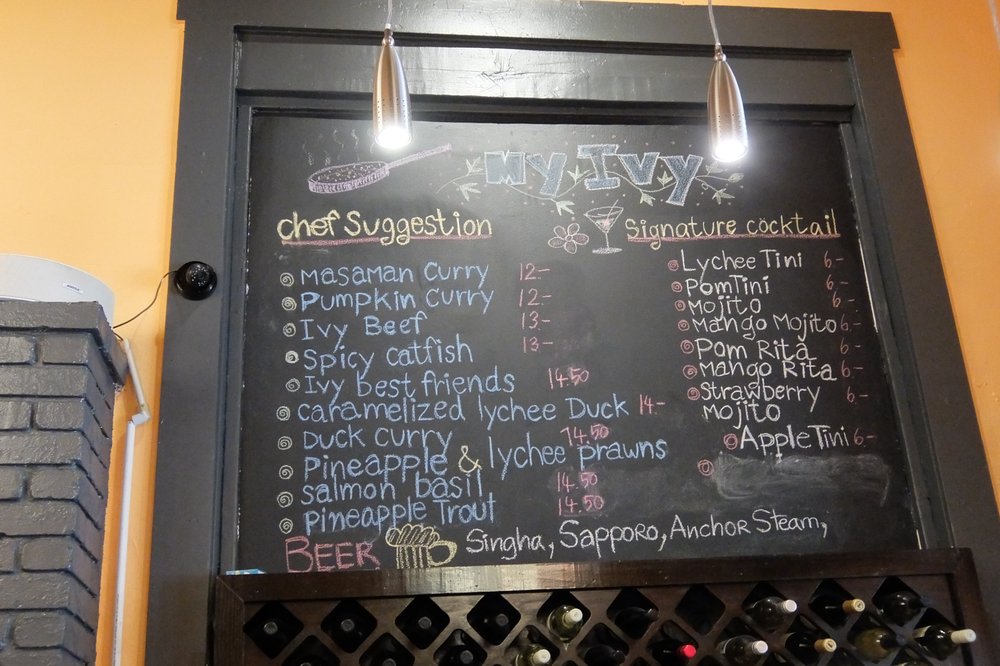 My Ivy
chef Suggestion
Masaman Curry 12.-
Pumpkin Curry 12.-
Ivy Beef 13.-
Spicy catfish 13.-
Ivy best friends 14.50
caramelized lychee Duck 14.-
Duck curry 14.50
Pineapple & lychee prawns
salmon basil 14.50
Pineapple Trout 14.50
Signature cocktail
Lychee Tini 6.-
PomTini 6.-
Mojito 6.-
Mango Mojito 6.-
Pom Rita 6.-
Mango Rita 6.-
Strawberry 6.-
Mojito
Apple Tini 6.-
BEER Singha, Sapporo, Anchor Steam,